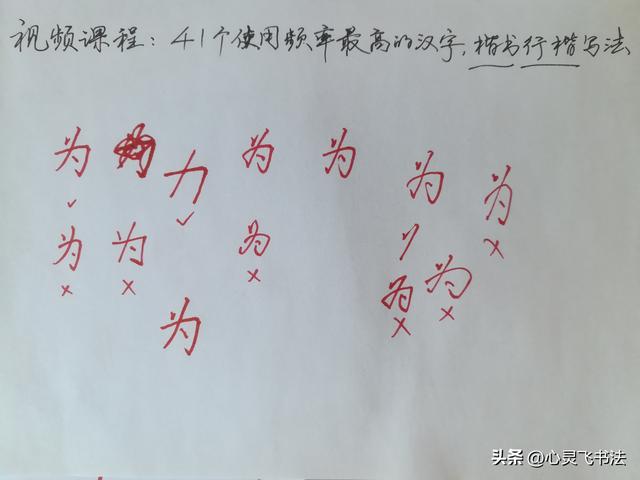 视频课程：41个使用频率最高的汉字，楷书行楷写法
为 为 力 为 为 为 为
✓ ✓
为 为 为 ×
× × × 为 为
为 × ×
头条 @心灵飞书法